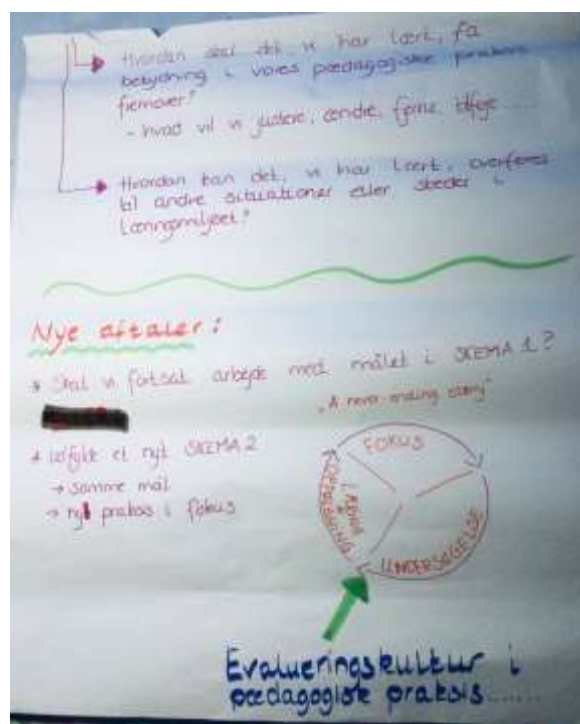 Hvordan skal det, vi har lært, få
betydning i vores pædagogiske praksis
fremover?
- hvad vil vi justere, ændre, fjerne, tilføje......
Hvordan kan det, vi har lært, overføres
til andre situationer eller steder i
læringsmiljøet?
Nye aftaler:
* Skal vi fortsat arbejde med målet i SKEMA 1?
"A never-ending story"
* udfylde et nyt SKEMA 2
→ samme mål
→ ny praksis i fokus
FOKUS
UNDERSØGELSE
LÆRING
Evalueringskultur i
pædagogisk praksis......